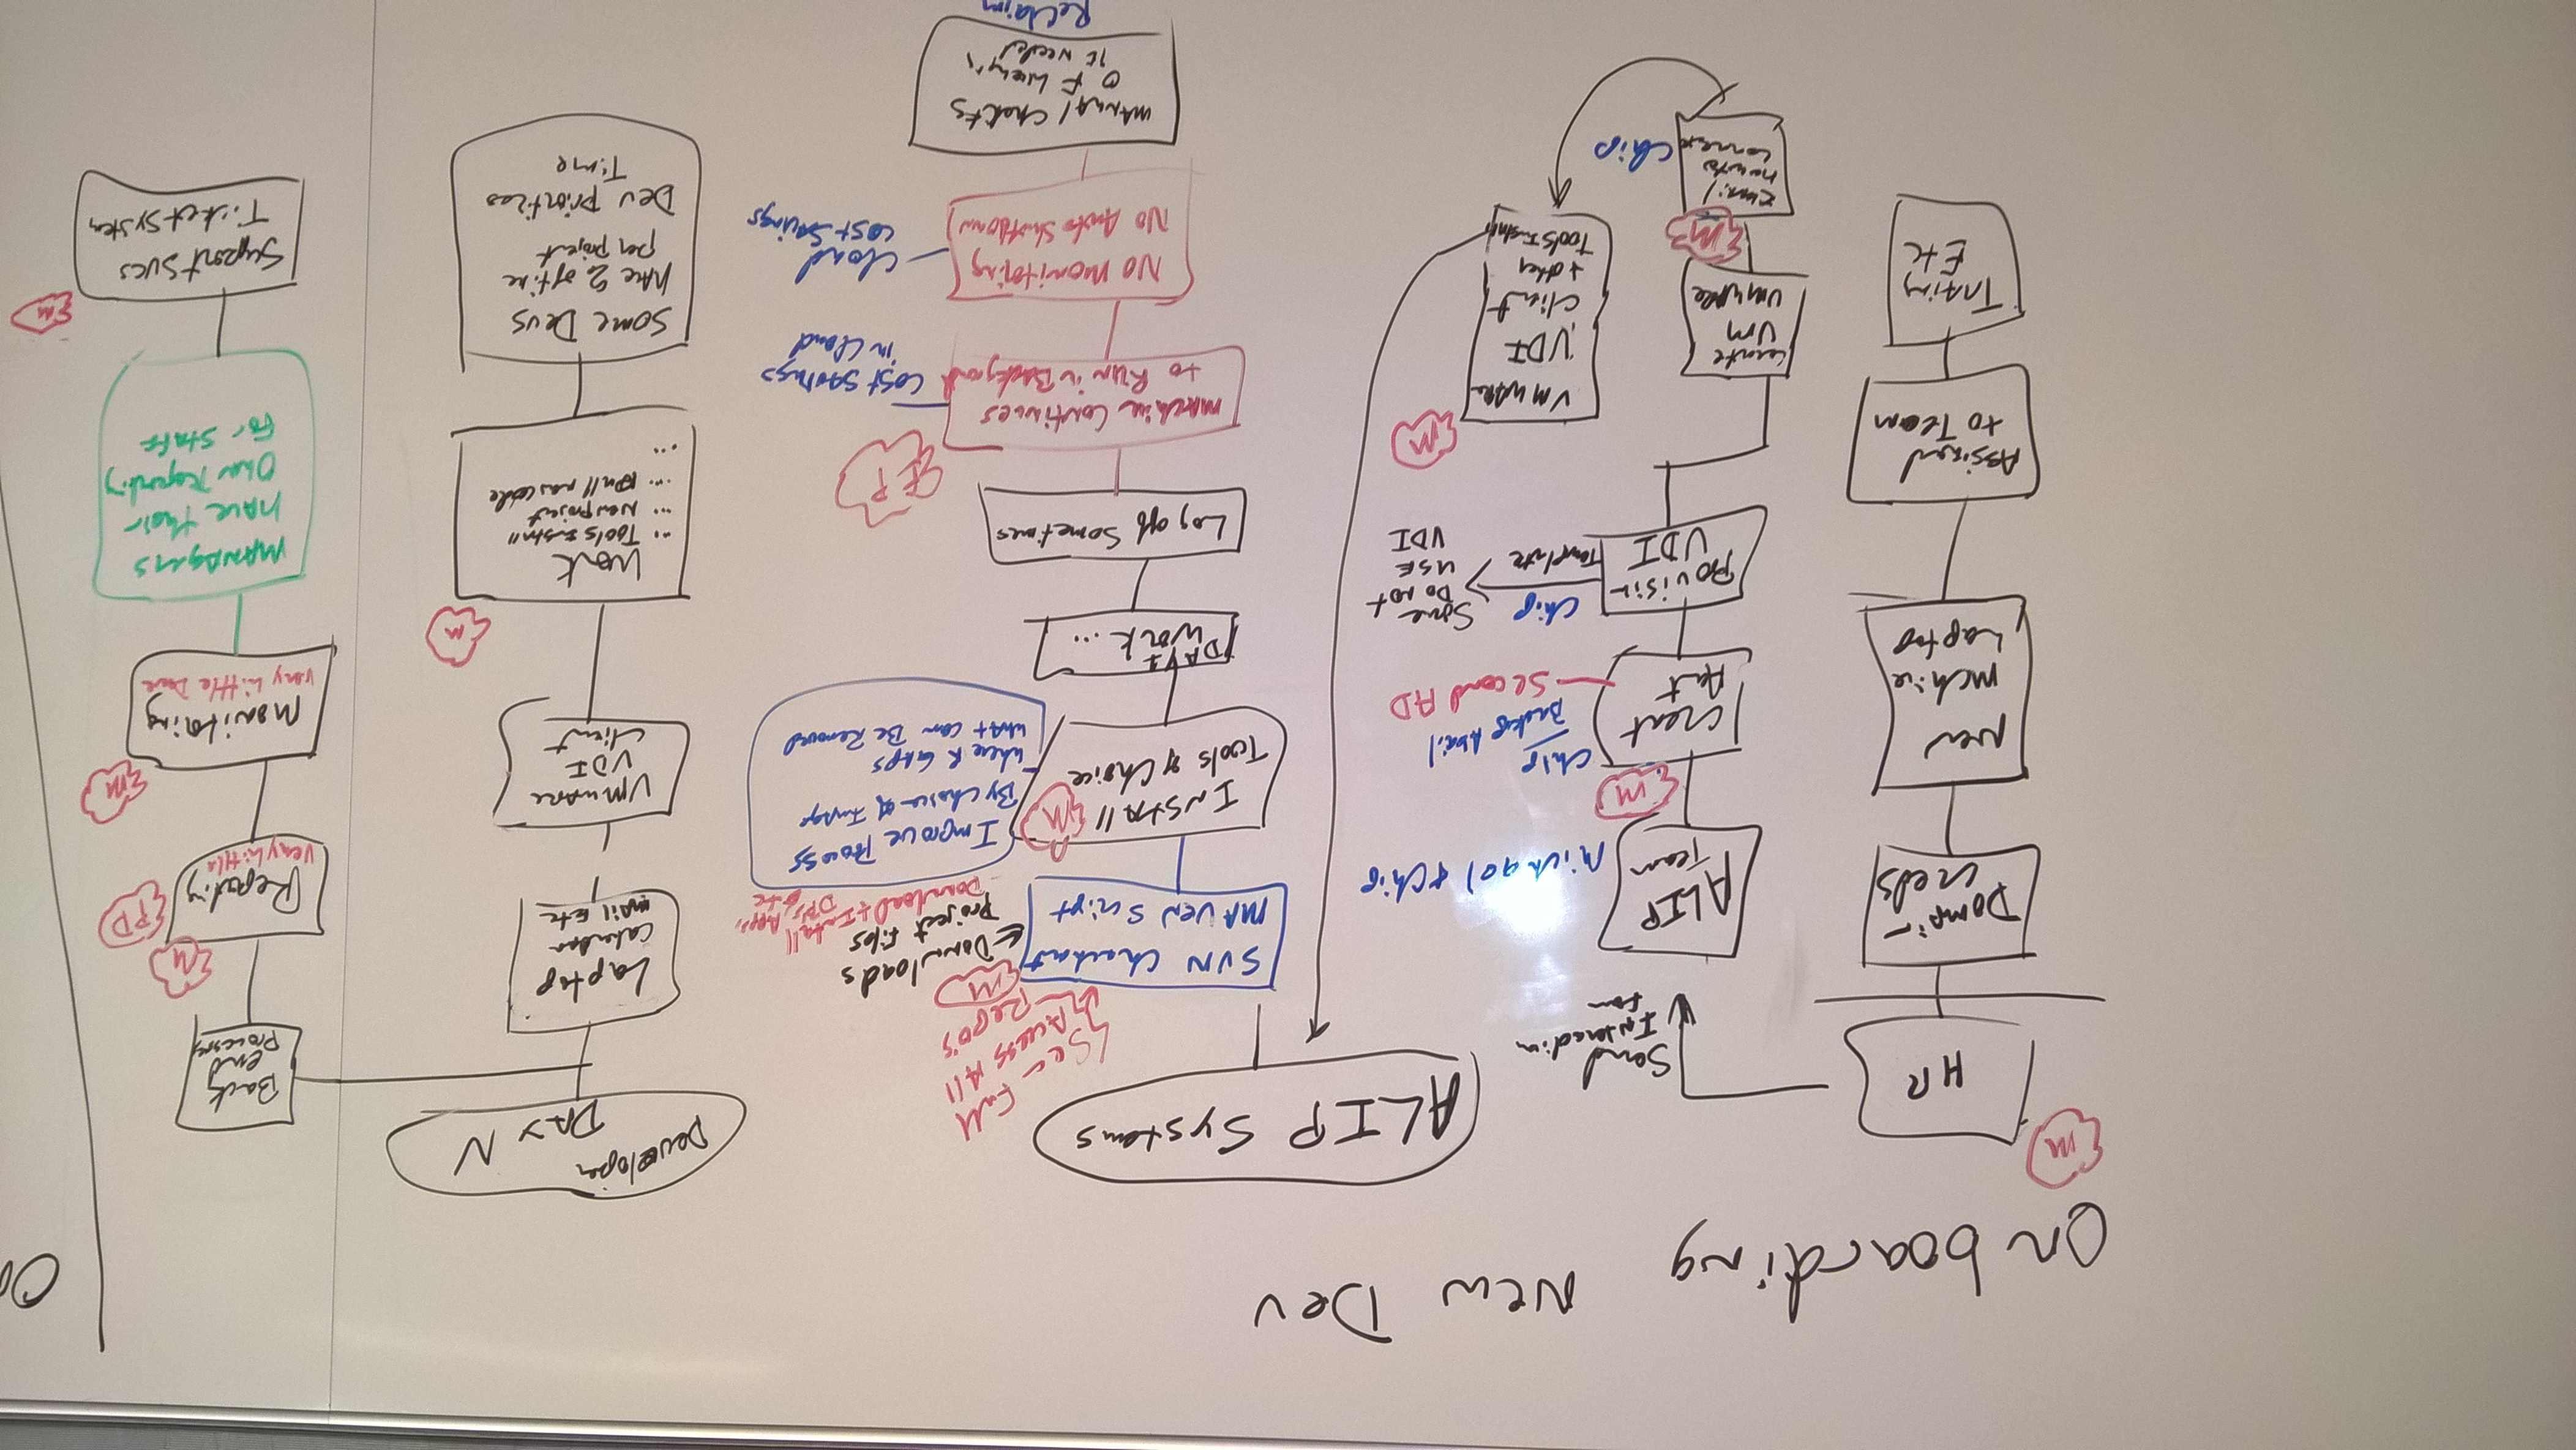 Onboarding New Dev
On
M
HR
Send
Domain
creds
New
Mchine
Laptop
Assigned
to Team
Etc
ALIP
Team
Michael & Chip
M
Creat
Acnt
Chip
Backup Abail
Second AD
Provisin
VDI
Chip
Template
Some
Do not
use
VDI
Create
VM
VMware
M
Email
how to
connect
Chip
M
VMware
VDI
Client
+ other
Tools Install
ALIP Systems
Full
Access All
Repo's
M
SVN Checkout
Maven Script
Downloads
Project Files
Download + Install
Apps,
etc
Install
Tools of Choice
M
Improve Process
By Choice of Image
Where R GAPS
What can Be Removed
Day 1
Work ...
Log off Sometimes
EP
Machine Continues
to Run in Background
Cost Savings
in Cloud
No Monitoring
No Auto Shutdown
Cloud
Cost Savings
Manual Checks
OF
If Needed
ReClaim
Developer
Day N
Laptop
Mail Etc
VMware
VDI
Client
M
Work
... Tools Install
... New project
... Pull new code
...
Some Devs
have % of time
per project
Dev prioritizes
Time
Back
end
Processes
M
PD
Reporting
Very Little
M
Monitoring
Very Little Done
Managers
have their
Own Reporting
For Staff
M
Support Svcs
Ticket System